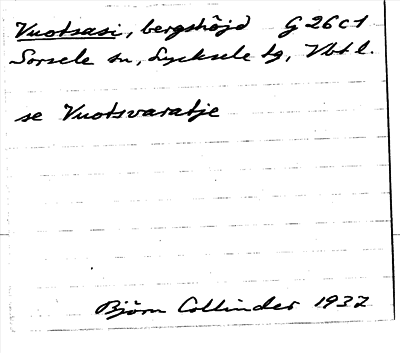 Vuotsasi, bergshöjd G 26 c 1
Sorsele sn, Lycksele tg, Vbt l.
se Vuotsvaratje
Björn Collinder 1937